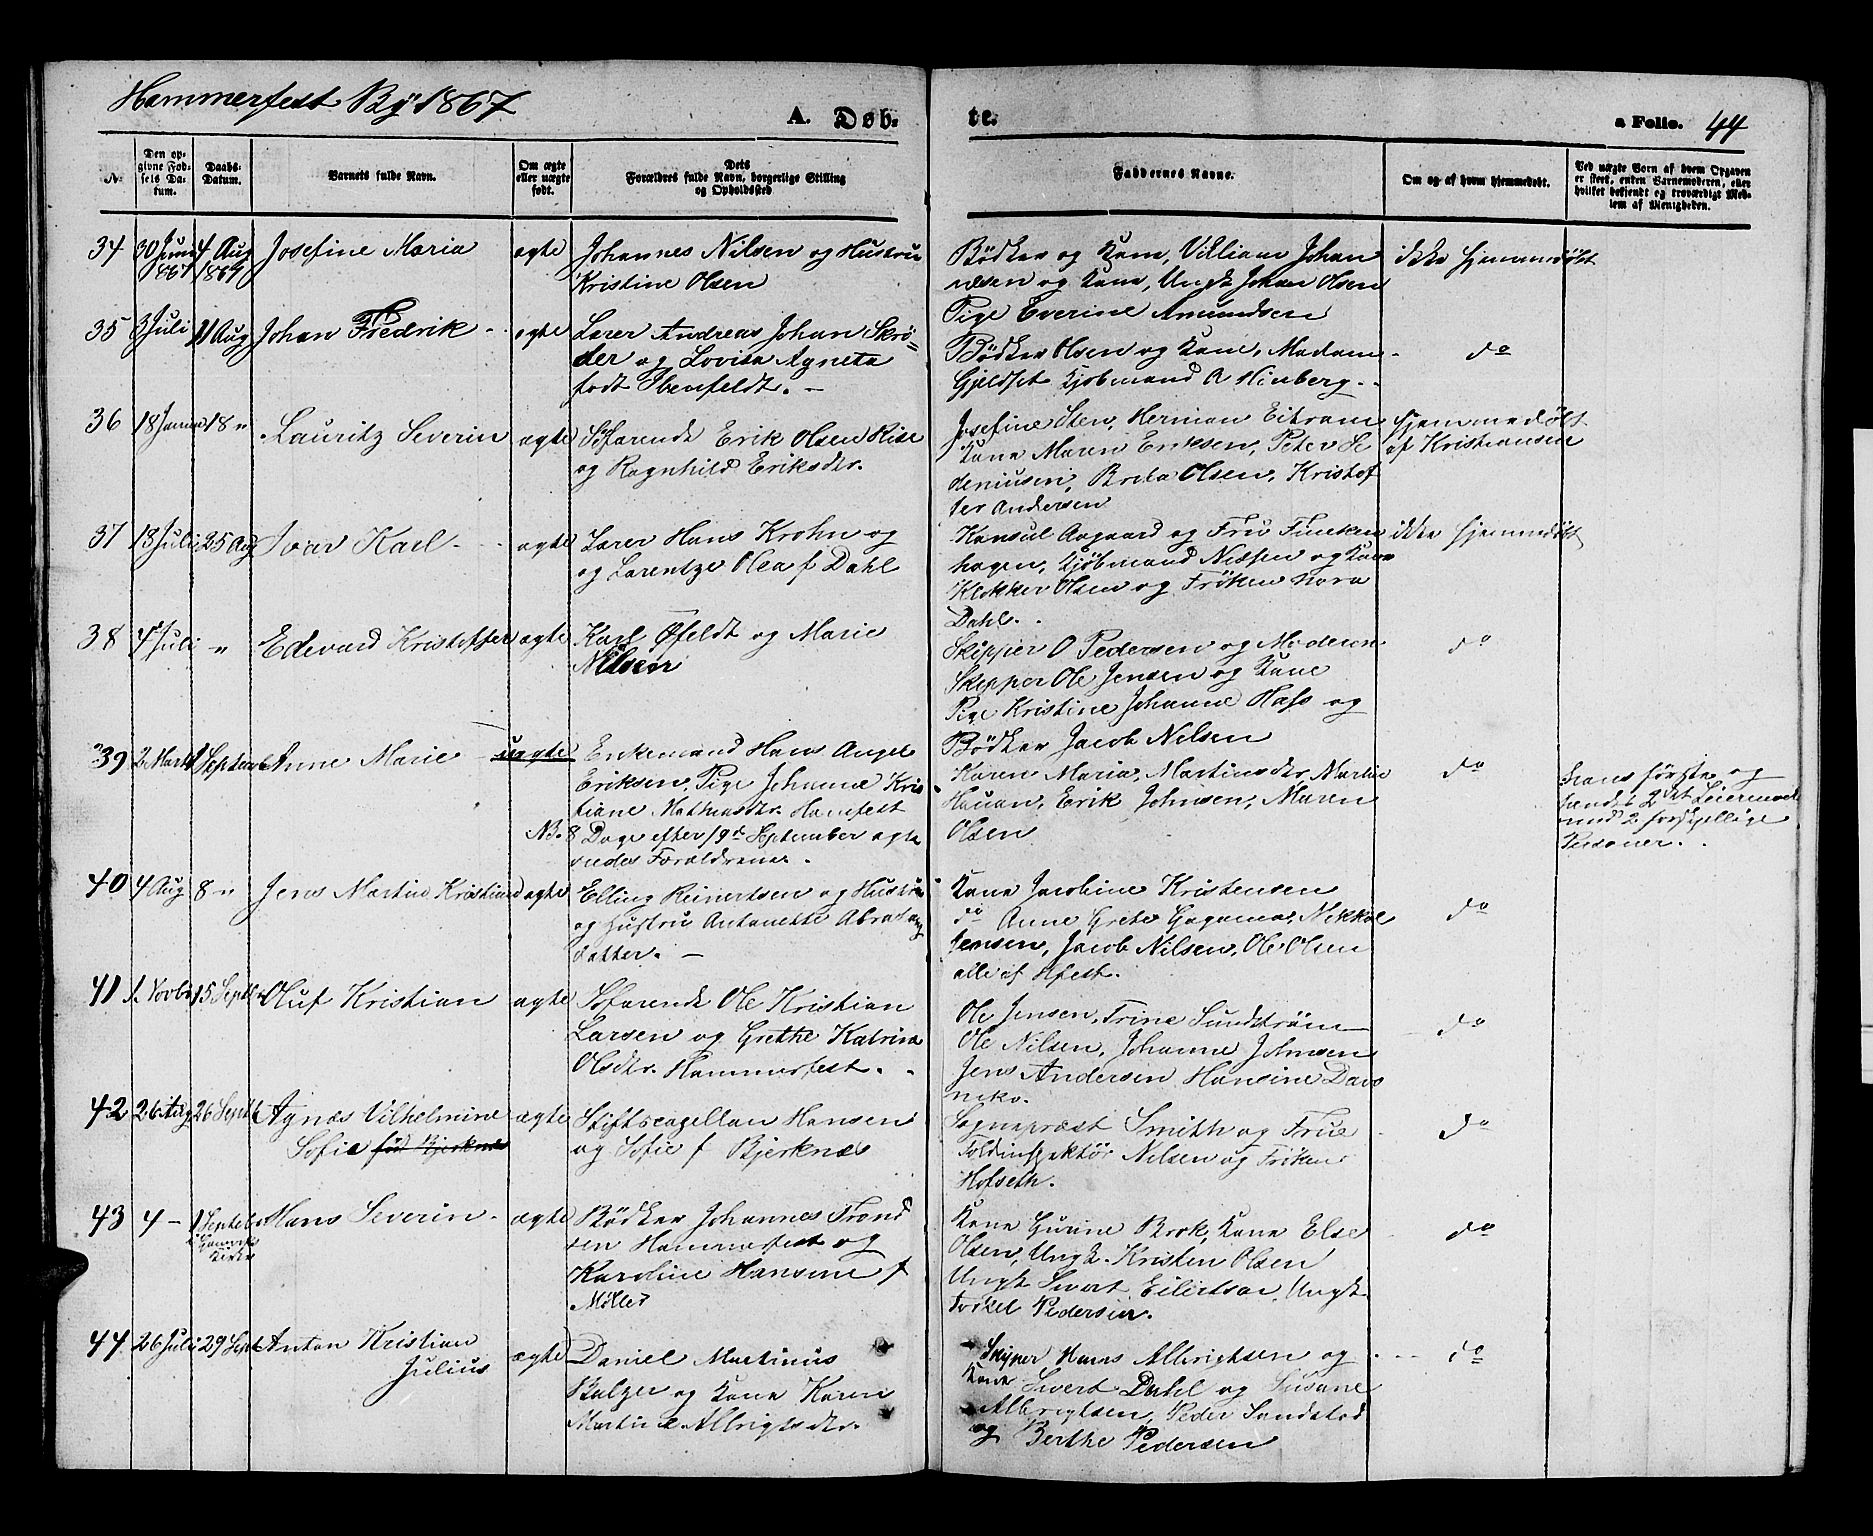 Hammerfest By 1867
A. Døb-
te.
a Folio. 44
N.
Den op-
givne Fød-
sels Da-
tum.
Daabs-
Datum.
Barnets fulde Navn.
Om ægte
eller uægte
født.
Dets
Forældres fulde Navn, borgerlige Stilling
og Opholdssted
Faddernes Navne.
Om og af hvem hjemmedøbt.
Ved uægte Børn af hvem Opgaven
er skeet, enten Barnemoderen, eller
hvilket bekjendt og troværdigt Med-
lem af Menigheden.
34 30 Juni 1867 4 Aug 1867 Josefine Maria ægte Johannes Nilsen og Hustru
Kristine Olsen
Bødker og Kone, Villiam Johan
nesen og Kone, Ungk Johan Olsen
Pige Everine Amundsen
ikke hjemmedøbt
35 3 Juli 11 Aug Johan Fredrik ægte Lærer Andreas Johan Skrø=
der og Lovisa Agneta
født Ibenfeldt.
Bødker Olsen og Kone, Madam
Gjeldset Kjøbmand A Hinberg
do
36 18 Januar 18 " Lauritz Severin ægte Søfarende Erik Olsen Rise
og Ragnhild Eriksdtr.
Josefine Sten, Herman Eitram
Kone Maren Eriksen, Peter Se
deniusen, Brita Olsen, Kristof
fer Andersen
hjemmedøbt
af Kristiansen
37 18 Juli 25 Aug Ivar Karl ægte Lærer Hans Krohn og
og Larentze Olea f Dahl
Konsul Aagaard og Fru Finken
hagen, Kjøbmand Nissen og Kone
Klokker Olsen og Frøken Nora
Dahl.
ikke hjemmedøbt
38 4 Juli " Edevard Kristoffer ægte Karl Øfeldt og Marie
Nilsen
Skipper O Pedersen og Moderen
Skipper Ole Jensen og Kone
Pige Kristine Johanne Hass og
Bødker Jacob Nilsen
do
39 2 Marts 1 September Anne Marie uægte Enkemand Hans Angel
Eriksen, Pige Johanne Kris
tiane Mathiasdtr. Hamfest
NB. 8 Dage efter 19de September ægte
viedes Forældrene.
Karen Maria, Martinsdtr, Martin
Hauan, Erik Johnsen, Maren
Olsen
do
hans første og
hendes 2det Leiermaal
med 2 forskjellige
Personer.
40 4 Aug 8 " Jens Martin Kristian ægte Elling Reinertsen og Hustru
og Hustru Antonette Abraham
datter.
Kone Jacobine Kristensen
do Anne Grete Gagama, Nikkol
Jensen, Jacob Nilsen, Ole Olsen
alle af Hfest.
do
41 1 Novbr 15 Septbr Oluf Kristian ægte Søfarende Ole Kristian
Larsen og Grethe Katrine
Olsdtr. Hammerfest.
Ole Jensen, Trine Sundstrøm
Ole Nilsen, Johanne Johnsen
Jens Andersen Hansine Dav
neko.
do
42 26 Aug 26 Septb Agnæs Vilhelmine
Sofie fød Bjerknæs
ægte Stiftscapellan Hansen
og Sofie f Bjerknæs
Sognepræst Smith og Frue
Toldinspektør Nilsen og Frøken
Holseth.
do
43 4 - 1 Septebr
Kirke
Hans Severin ægte Bødker Johannes Trond
sen Hammerfest og
Karoline Hansine f
Møller
Kone Gurine Brok, Kone Else
Olsen, Ungk. Kristen Olsen
Ungk Sivert Eilertsen, Ungk
Torkel Pedersen.
do
44 26 Juli 29 Sept Anton Kristian
Julius
ægte Daniel Martinus
Balzer og Kone Karen
Martine Albrigtsdtr.
Skipper Hans Albrigtsen og
Kone Sivert Dahl og Susane
Albrigtsen, Peder Sandstad
og Berthe Pedersen
do